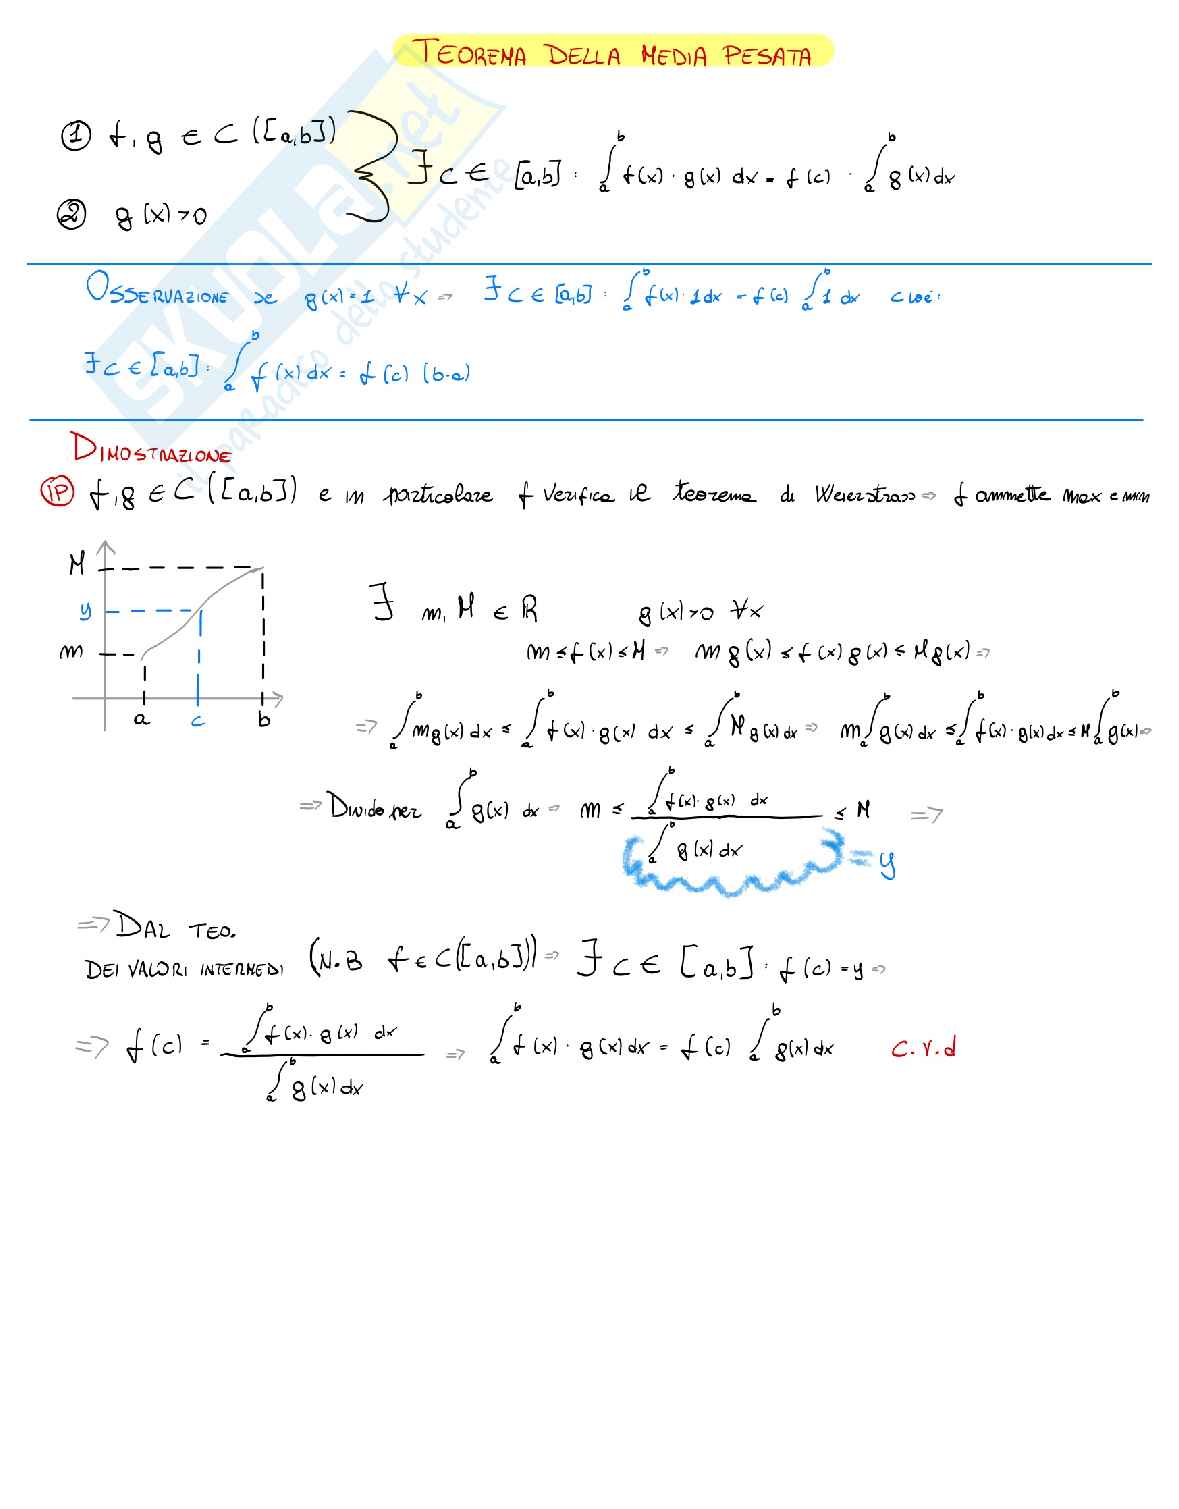 TEOREMA DELLA MEDIA PESATA
① f, g ∈ C([a,b])
② g(x)>0
∃ c ∈ [a,b] : ∫_a^b f(x) · g(x) dx = f(c) · ∫_a^b g(x) dx
OSSERVAZIONE se g(x)=1 ∀x => ∃ c ∈ [a,b] : ∫_a^b f(x) · 1 dx = f(c) ∫_a^b 1 dx cioè:
∃ c ∈ [a,b] : ∫_a^b f(x) dx = f(c) (b-a)
DIMOSTRAZIONE
iP f, g ∈ C([a,b]) e in particolare f verifica il teorema di Weierstrass => f ammette max e min
M
y
m
a c b
∃ m, M ∈ R g(x)>0 ∀x
m ≤ f(x) ≤ M => m g(x) ≤ f(x) g(x) ≤ M g(x) =>
=> ∫_a^b m g(x) dx ≤ ∫_a^b f(x) · g(x) dx ≤ ∫_a^b M g(x) dx => m ∫_a^b g(x) dx ≤ ∫_a^b f(x) · g(x) dx ≤ M ∫_a^b g(x) =>
=> Divido per ∫_a^b g(x) dx => m ≤ ∫_a^b f(x) · g(x) dx / ∫_a^b g(x) dx ≤ M =>
= y
=> DAL TEO.
DEI VALORI INTERMEDI (N.B f ∈ C([a,b])) => ∃ c ∈ [a,b] : f(c) = y =>
=> f(c) = ∫_a^b f(x) · g(x) dx / ∫_a^b g(x) dx => ∫_a^b f(x) · g(x) dx = f(c) ∫_a^b g(x) dx c.v.d
SKUOLA.net
il paradiso dello studente